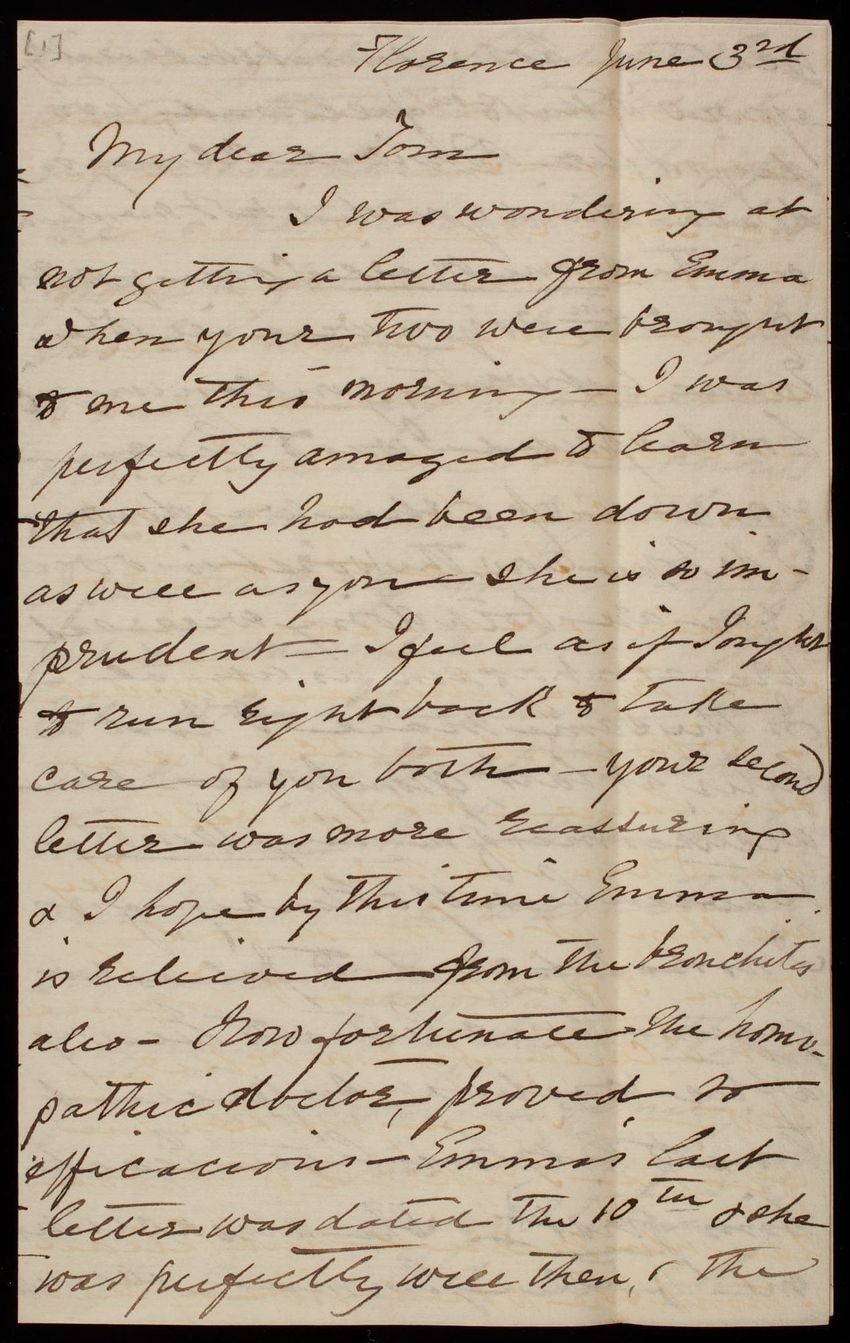 [1]
Florence June 3rd
My dear Tom
I was wondering at
not getting a letter from Emma
when your two were brought
to me this morning - I was
perfectly amazed to learn
that she had been down
as well as you - she is so im-
prudent - I feel as if I ought
to run right back to take
care of you both - your second
letter was more reassuring
& I hope by this time Emma
is relieved from the bronchitis
also - How fortunate the homo-
pathic doctor, proved so
efficacious - Emma's last
letter was dated the 10th & she
was perfectly well then, & the